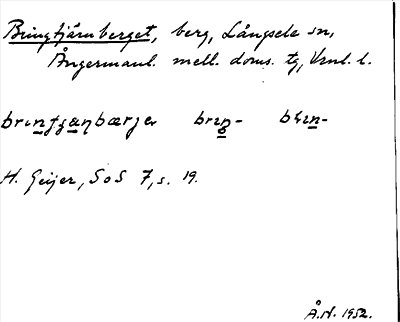 Bringtjärnberget, berg, Långsele sn,
Ångermanl. mell. doms. tg, Vrnl. l.
brıntjanbærjeʀ brın- bhın-
H. Geijer, SoS 7, s. 19.
Å.N. 1952.